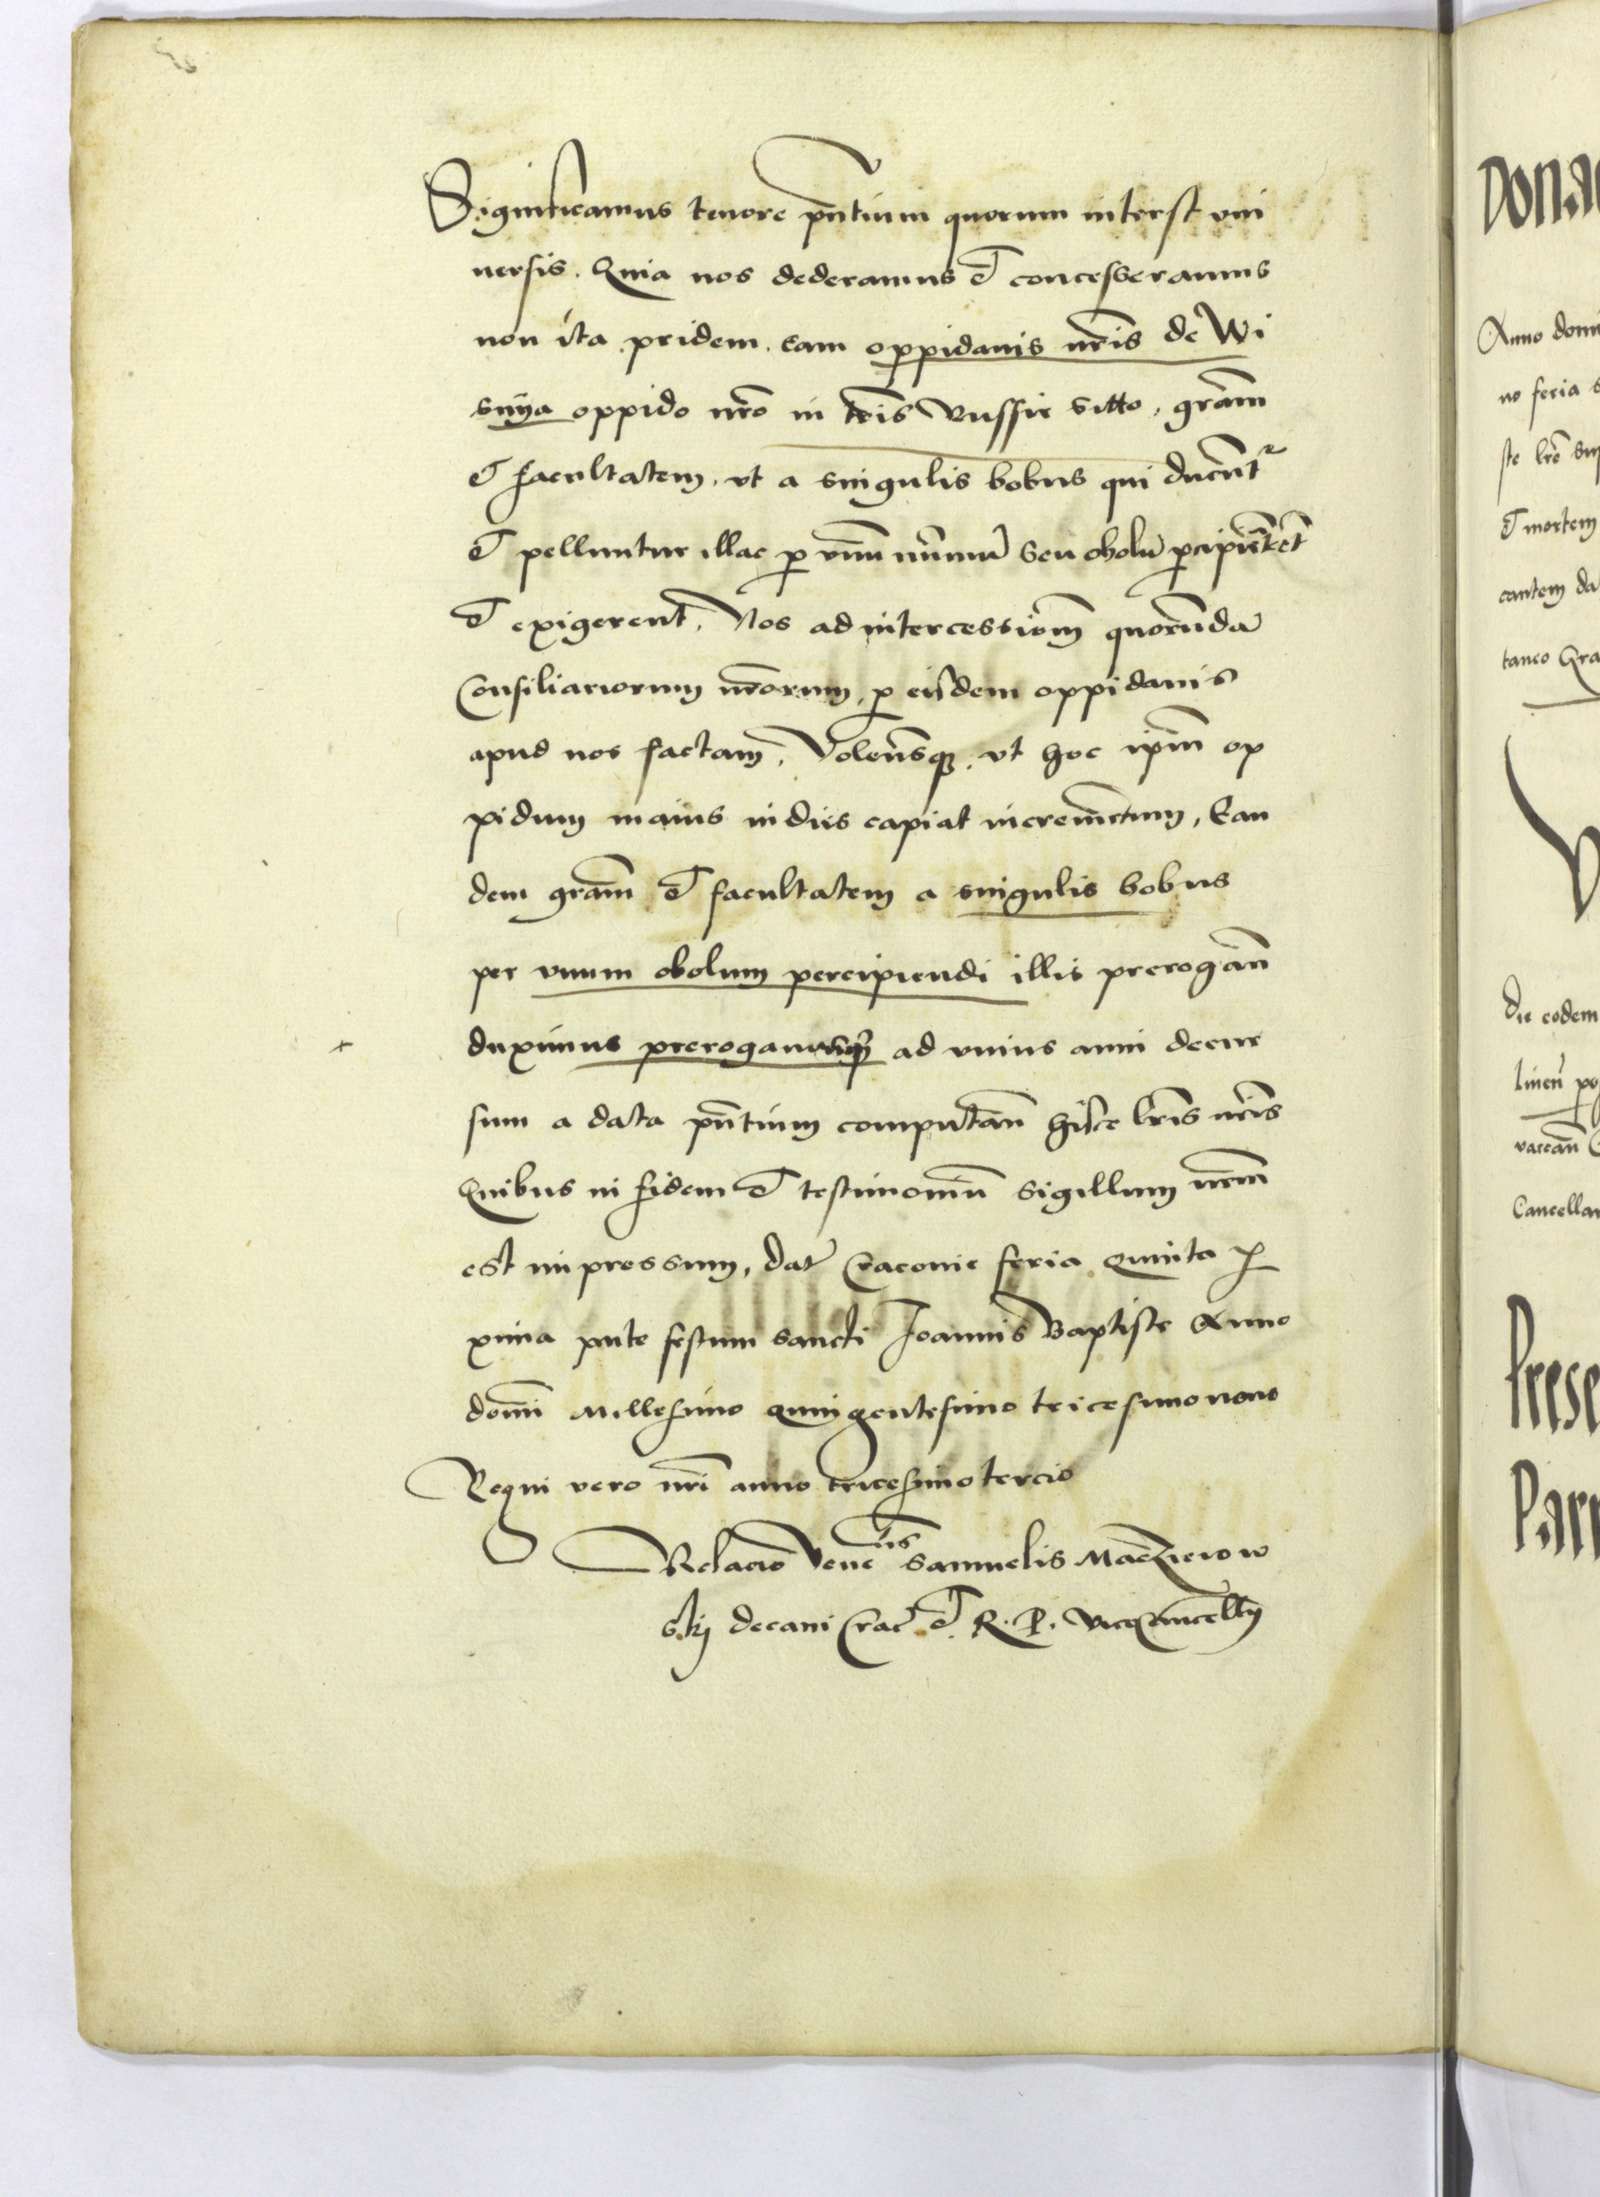 Significamus tenore pñtium quorum interest vni
uersis. Quia nos dederamus et concesseramus
non ita pridem eam oppidanis nr̃is de Wi
snya oppido nr̃o in tr̃is Russie sitto, gr̃am
et facultatem, vt a singulis bobus qui ducunt᷑
et pelluntur illac ꝑ vnũ nummũ seu obolũ ꝑciperent
et exigerent, Nos ad intercessionẽ quorundã
Consiliariorum nr̃orum, ꝑ eisdem oppidanis
apud nos factam, Volentesqꝫ vt hoc ip̃m op
pidum maius indies capiat incremẽtum, Ean
dem gr̃am et facultatem a singulis bobus
per vnum obolum percipiendi illis prerogan̄
duximus prerogamusqꝫ ad vnius anni decur
sum a data pñtium computan̄ hisce lr̃is nr̃is
Quibus in fidem et testimoniũ sigillum nr̃um
est impressum, dat̃ Cracovie feria quinta ꝓ
xima ante festum sancti Joannis Baptiste Anno
domĩ Millesimo quingentesimo tricesimo nono
Regni vero nr̃i anno tricesimo tercio
Relatio Vene͛lis Samuelis Maczieiow
skij decani Crac̃ et R. P. Vicecancellarij
Donac
Anno domi
no feria s
ste lr̃e su
et mortem
cantem da
taneo Gra
Die eodem
liuen po
vacan̄
Cancellar
Prese
Parr